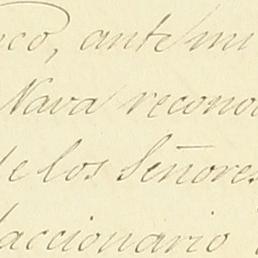 co, ante mi
Nava recono
de los Señores
accionario